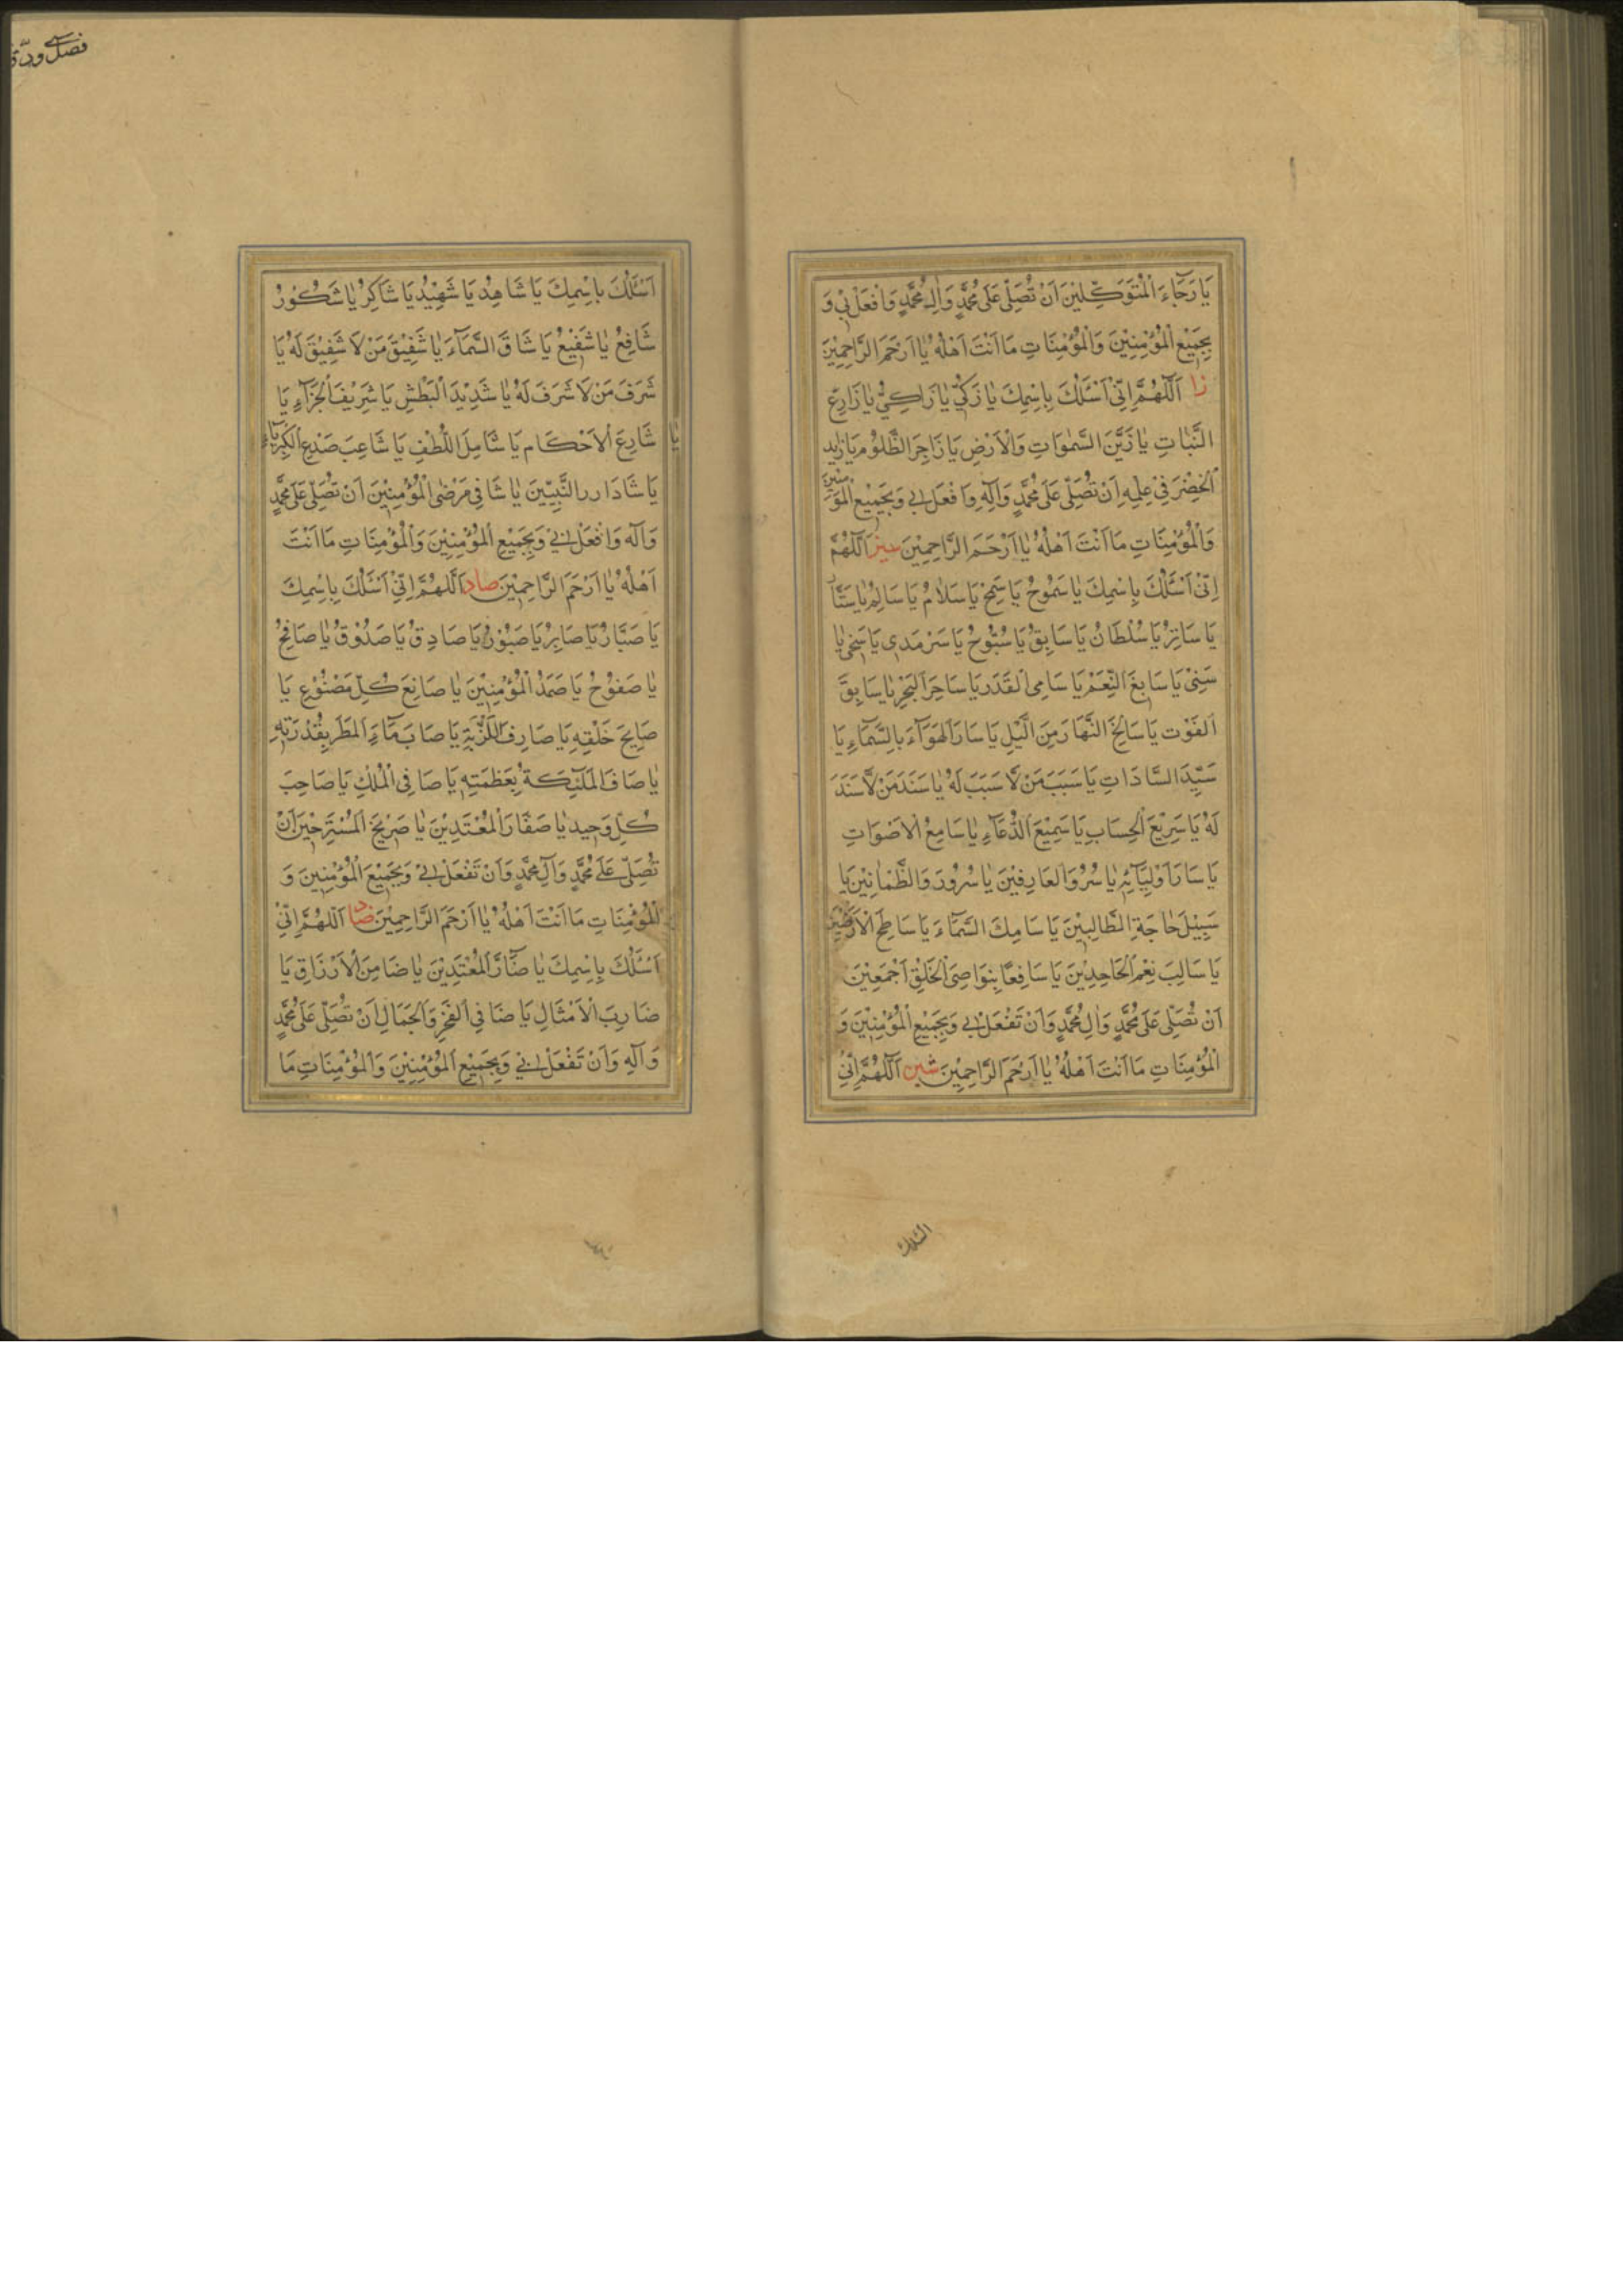 يَا رَجَاءَ الْمُتَوَكِّلِيْنَ اَنْ تُصَلِّىَ عَلَى مُحَمَّدٍ وَآلِ مُحَمَّدٍ وَافْعَلْ بِىْ وَ
بِجَمِيْعِ الْمُؤْمِنِيْنَ وَالْمُؤْمِنَاتِ مَا اَنْتَ اَهْلُهُ يَا اَرْحَمَ الرَّاحِمِيْنَ
زا اَللّٰهُمَّ اِنِّىْ اَسْئَلُكَ بِاسْمِكَ يَا زَكِىُّ يَا زَاكِىُّ يَا زَارِعَ
النَّبَاتِ يَا زَيَّنَ السَّمٰوَاتِ وَالْاَرْضِ يَا زَاجِرَ الظَّلُوْمِ يَا زايد
الْخِضْرَ فِىْ عِلْمِهِ اِنْ تُصَلِّىَ عَلَى مُحَمَّدٍ وَآلِهِ وَافْعَلْ بِى وَبِجَمِيْعِ الْمُؤْمِنِيْنَ
وَالْمُؤْمِنَاتِ مَا اَنْتَ اَهْلُهُ يَا اَرْحَمَ الرَّاحِمِيْنَ سين اَللّٰهُمَّ
اِنِّىْ اَسْئَلُكَ بِاسْمِكَ يَا سَمُوْحُ يَا سَمِحُ يَا سَلَامُ يَا سَالِمُ يَا سَتَّارُ
يَا سَاتِرُ يَا سُلْطَانُ يَا سَابِقُ يَا سُبُّوْحُ يَا سَرْمَدِى يَا سَخِىُ يَا
سَنِىْ يَا سَابِغَ النِّعَمِ يَا سَامِى الْقَدَرِ يَا سَاجِرَ الْبَحْرِ يَا سَابِقَ
الْفَوْتِ يَا سَالِخَ النَّهَارِ مِنَ الَّيْلِ يَا سَادَ الْهَوَآءَ بِالسَّمَآءِ يَا
سَيِّدَ السَّادَاتِ يَا سَبَبَ مَنْ لَّا سَبَبَ لَهُ يَا سَنَدَ مَنْ لَّا سَنَدَ
لَهُ يَا سَرِيْعَ الْحِسَابِ يَا سَمِيْعَ الدُّعَآءِ يَا سَامِعُ الْاَصْوَاتِ
يَا سَارَّ اَوْلِيَآئِهِ يَا سُرُوَ الْعَارِفِيْنَ يَا سُرُوْرَ وَالظَّمَانِيْنَ يَا
سَبِيْلَ حَاجَةِ الطَّالِبِيْنَ يَا سَامِكَ السَّمَآءَ يَا سَاطِحَ الْاَرَضِيْنَ
يَا سَالِبَ نِعْمَ الْجَاحِدِيْنَ يَا سَافِعًا بِنَوَاصِىَ الْخَلْقِ اَجْمَعِيْنَ
اَنْ تُصَلِّىَ عَلَى مُحَمَّدٍ وَآلِ مُحَمَّدٍ وَاَنْ تَفْعَلَ بِى وَبِجَمِيْعِ الْمُؤْمِنِيْنَ وَ
الْمُؤْمِنَاتِ مَا اَنْتَ اَهْلُهُ يَا اَرْحَمَ الرَّاحِمِيْنَ شين اَللّٰهُمَّ اِنِّىْ
اَسْئَلُكَ بِاسْمِكَ يَا شَاهِدُ يَا شَهِيْدُ يَا شَاكِرُ يَا شَكُوْرُ
يا
شَافِعُ يَا شَفِيْعُ يَا شَاقَ السَّمَآءَ يَا شَفِيْقَ مَنْ لَا شَفِيْقَ لَهُ يَا
شَرَفَ مَنْ لَا شَرَفَ لَهُ يَا شَدِيْدَ الْبَطْشِ يَا شَرِيْفَ الْجَزَآءِ يَا
شَارِعَ الْاَحْكَامِ يَا شَامِلَ اللُّطْفِ يَا شَاعِبَ صَدْعِ الْكِبْرِيَآءِ
يَا شَادَ ازر النَّبِيِّيْنَ يَا شَافِىَ مَرْضَى الْمُؤْمِنِيْنَ اَنْ تُصَلِّىَ عَلَى مُحَمَّدٍ
وَآلِهِ وَافْعَلْ بِىْ وَبِجَمِيْعِ الْمُؤْمِنِيْنَ وَالْمُؤْمِنَاتِ مَا اَنْتَ
اَهْلُهُ يَا اَرْحَمَ الرَّاحِمِيْنَ صاد اَللّٰهُمَّ اِنِّىْ اَسْئَلُكَ بِاسْمِكَ
يَا صَبَّارُ يَا صَابِرُ يَا صَبُوْرُ يَا صَادِقُ يَا صَدُوْقُ يَا صَافِحُ
يَا صَفُوْحُ يَا صَمَدُ الْمُؤْمِنِيْنَ يَا صَانِعَ كُلِّ مَصْنُوْعٍ يَا
صَايِحَ خَلْقِهِ يَا صَارِفَ اللَّزْبَةِ يَا صَابَ مَآءِ الْمَطَرِ بِقُدْرَتِهِ
يَا صَافَ الْمَلٰئِكَةِ بِعَظَمَتِهِ يَا صَافِى الْمُلْكِ يَا صَاحِبَ
كُلِّ وَحِيدٍ يَا صَفَّارَ الْمُعْتَدِيْنَ يَا صَرِيْخَ الْمُسْتَصْرِخِيْنَ اَنْ
تُصَلِّىَ عَلَى مُحَمَّدٍ وَآلِ مُحَمَّدٍ وَاَنْ تَفْعَلَ بِىْ وَبِجَمِيْعِ الْمُؤْمِنِيْنَ وَ
الْمُؤْمِنَاتِ مَا اَنْتَ اَهْلُهُ يَا اَرْحَمَ الرَّاحِمِيْنَ ضاد اَللّٰهُمَّ اِنِّىْ
اَسْئَلُكَ بِاسْمِكَ يَا ضَآرَّ الْمُعْتَدِيْنَ يَا ضَامِنَ الْاَرْزَاقِ يَا
ضَارِبَ الْاَمْثَالِ يَا ضَافِى الْفَخْرِ وَالْجَمَالِ اَنْ تُصَلِّىَ عَلَى مُحَمَّدٍ
وَآلِهِ وَاَنْ تَفْعَلَ بِىْ وَبِجَمِيْعِ الْمُؤْمِنِيْنَ وَالْمُؤْمِنَاتِ مَا